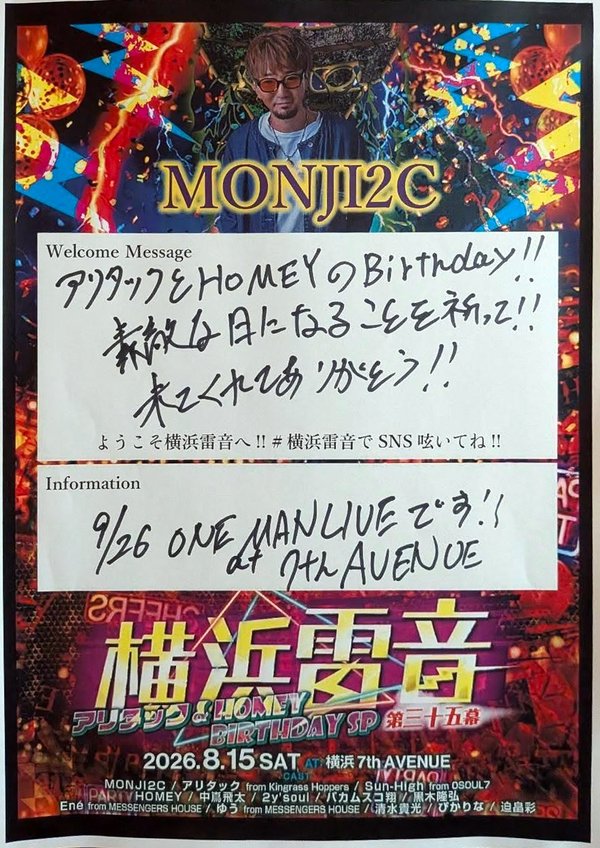 MONJI2C
Welcome Message
アリタックとHOMEYのBirthday!!
素敵な日になることを祈って!!
来てくれてありがとう!!
ようこそ横浜雷音へ!!#横浜雷音でSNS呟いてね!!
Information
9/26 ONE MAN LIVEです!!
at 7th AVENUE
CHEERS
横浜雷音
アリタック&HOMEY
BIRTHDAY SP 第三十五幕
2026.8.15 SAT AT: 横浜 7th AVENUE
CAST
MONJI2C / アリタック from Kingrass Hoppers / Sun-High from OSOUL7
HOMEY / 中嶌飛太 / 2y'soul / バカムスコ翔 / 黒木隆弘
Ené from MESSENGERS HOUSE / ゆう from MESSENGERS HOUSE / 清水貴光 / ぴかりな / 迫畠彩
PARTY